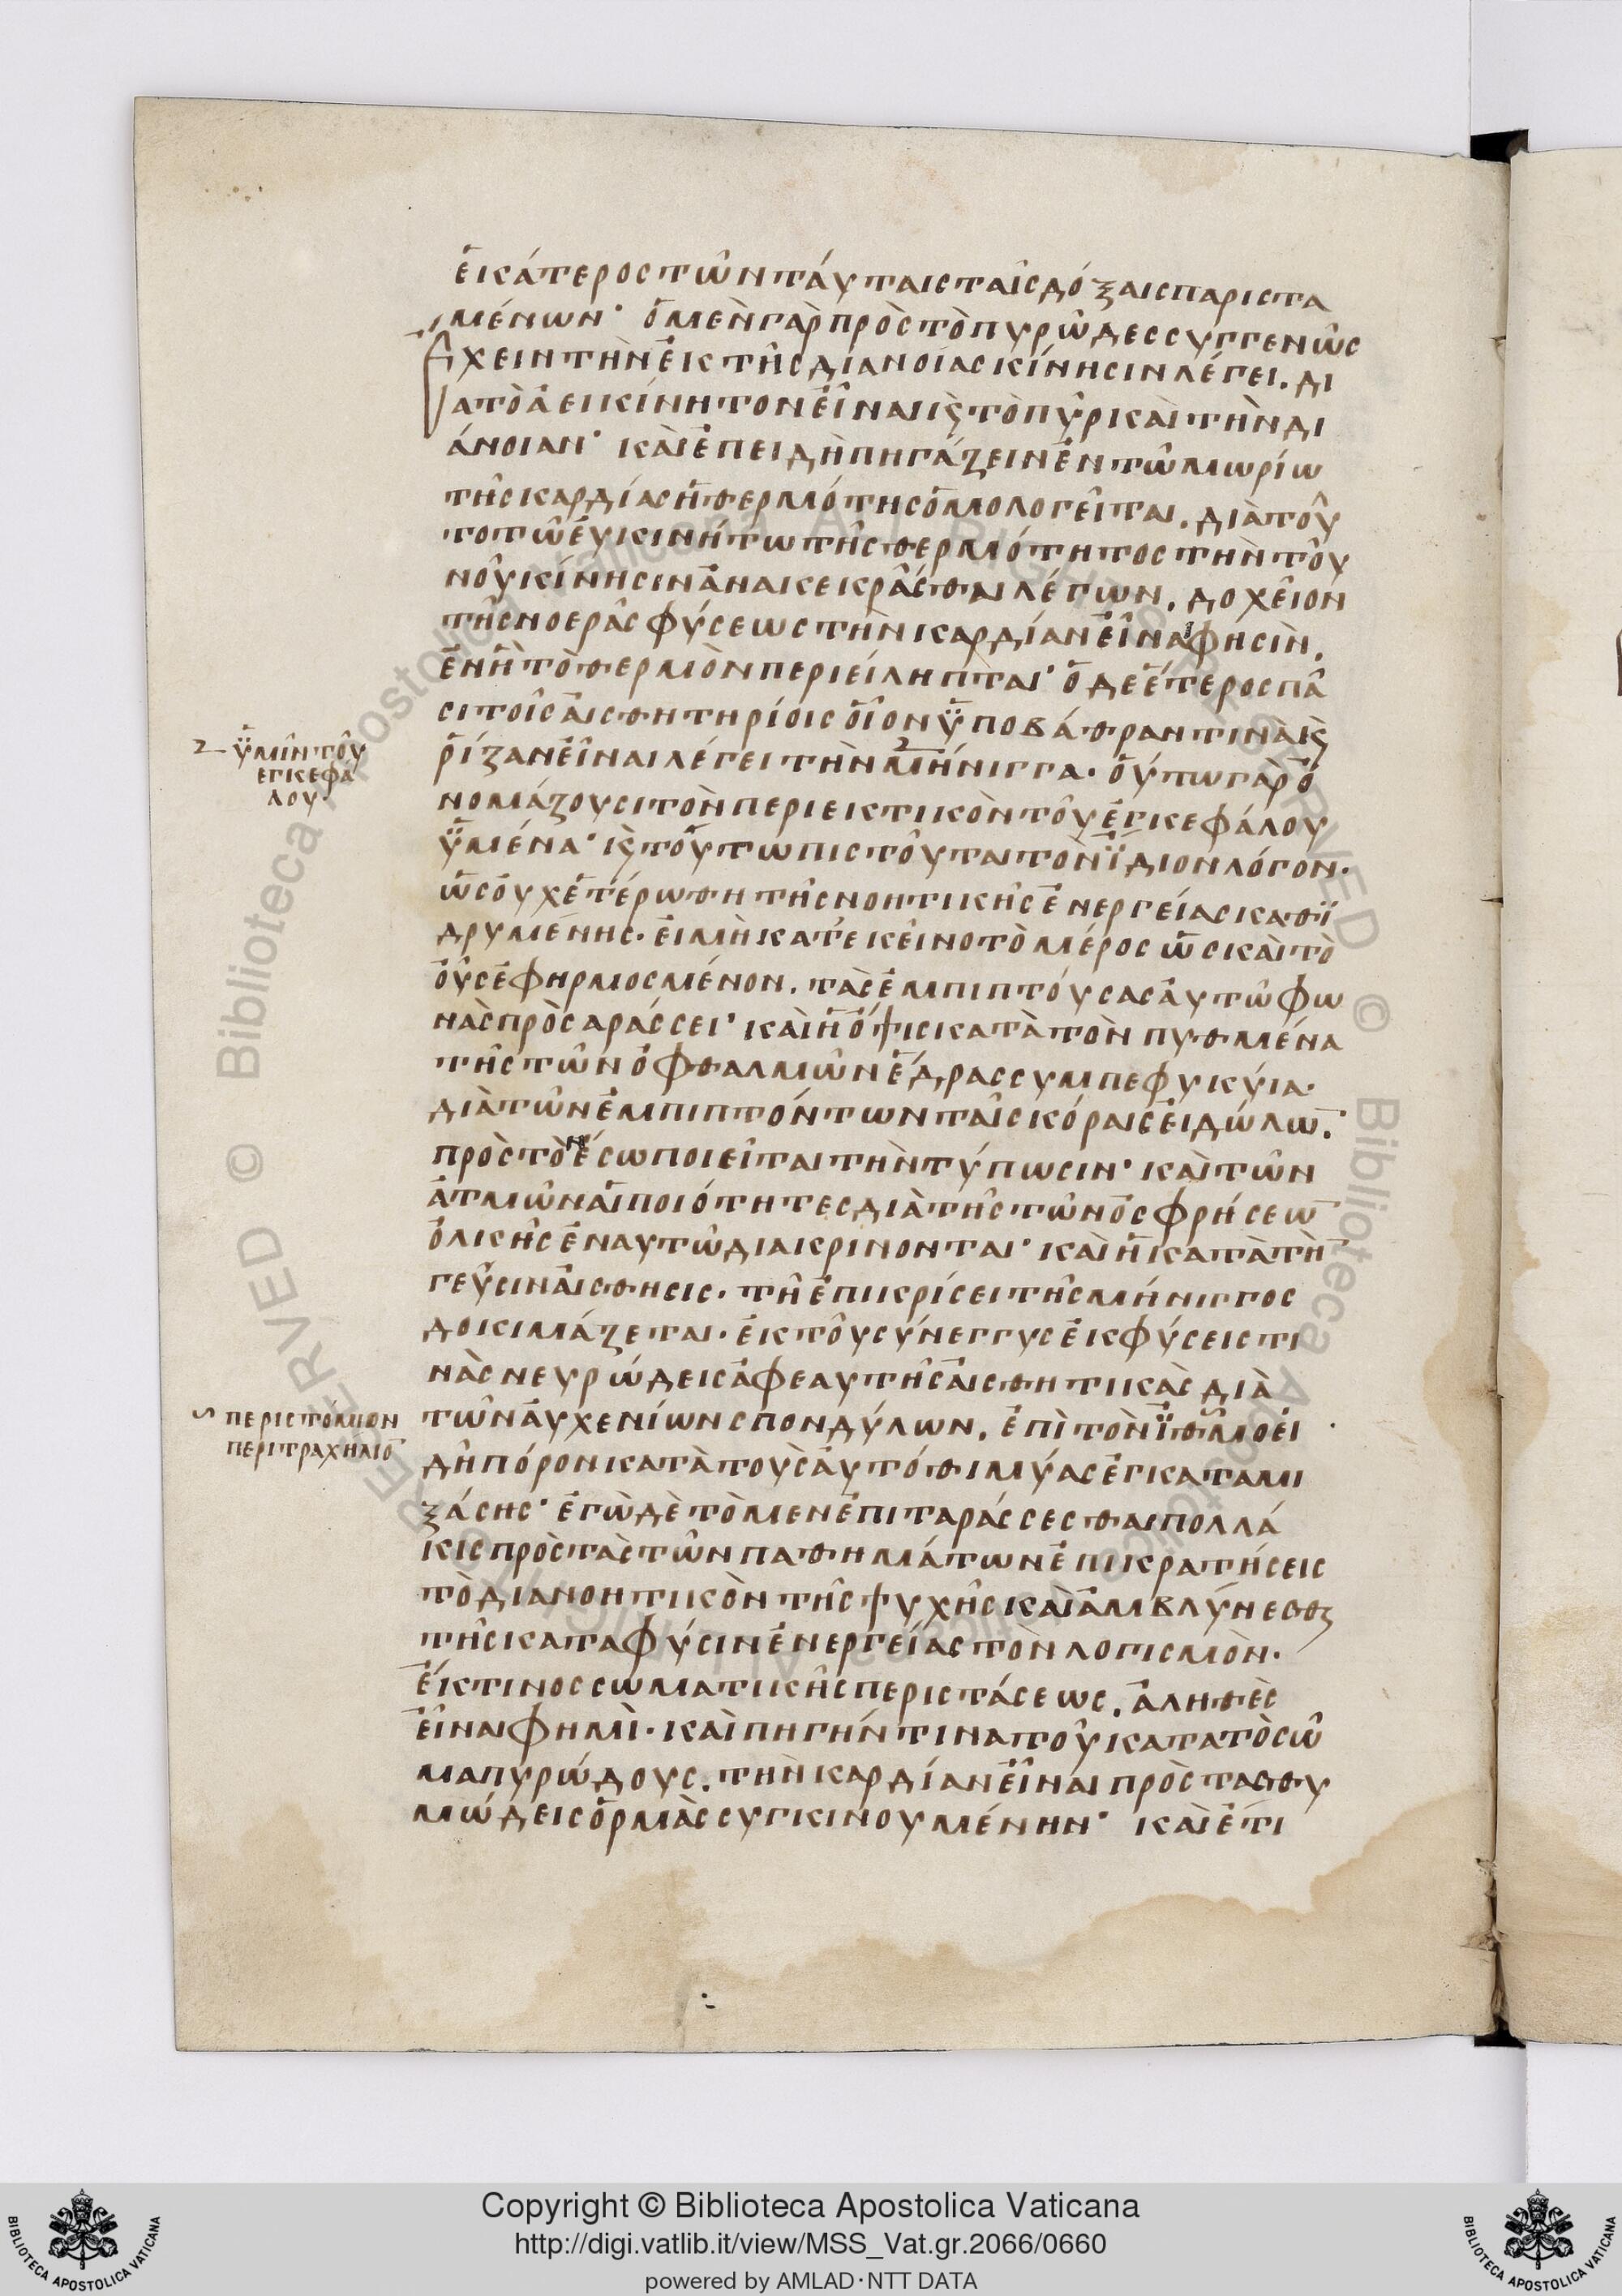 ἑκάτερος τῶν ταύταις ταῖς δόξαις παριστα
μένων· ὁ μὲν γὰρ πρὸς τὸ πυρῶδες συγγενῶς
ἔχειν τὴν ἐκ τῆς διανοίας κίνησιν λέγει. δι
ὰ τὸ ἀεικίνητον εἶναι κ(αὶ) τὸ πῦρ καὶ τὴν δι
άνοιαν· καὶ ἐπειδὴ πηγάζειν ἐν τῶ μωρίω
τῆς καρδίας ἡ θερμότης ὁμολογεῖται. διὰ τοῦ
το τῶ εὐκινήτω τῆς θερμότητος τὴν τοῦ
νοῦ κίνησιν ἀνακεκρᾶσθαι λέγων. δοχεῖον
τῆς νοερᾶς φύσεως τὴν καρδίαν εἶναι φησὶν.
ἐν ἧ τὸ θερμὸν περιείληπται· ὁ δὲ ἕτερος πᾶ
σι τοῖς αἰσθητηρίοις οἷον ὑποβάθραν τινὰ κ(αὶ)
ῥίζαν εἶναι λέγει τὴν μήνιγγα. οὕτω γὰρ ὀ
νομάζουσι τὸν περιεκτικὸν τοῦ ἐγκεφάλου
ὑμένα· κ(αὶ) τούτω πιστοῦται τὸν ἴδιον λόγον.
ὡς οὐχ ἑτέρωθη τῆς νοητικῆς ἐνεργείας καθϊ
δρυμένης. εἰ μὴ κατ' ἐκεῖνο τὸ μέρος ὡς καὶ τὸ
οὖς ἐφηρμοσμένον. τὰς ἐμπιπτούσας αὐτῶ φω
νὰς πρὸς αράσσει· καὶ ἡ ὄψις κατὰ τὸν πυθμένα
τῆς τῶν ὀφθαλμῶν ἕδρας συμπεφυκύια.
διὰ τῶν ἐμπιπτόντων ταῖς κόραις εἰδώλω̅.
πρὸς τὸν ἔσω ποιεῖται τὴν τύπωσιν· καὶ τῶν
ἀτμῶν αἱ ποιότητες διὰ τῆς τῶν ὀσφρήσεω̅
ὁλκῆς ἐν αυτῶ διακρίνονται· καὶ ἡ κατὰ τὴ̅
γεῦσιν αἴσθησις. τῆ ἐπικρίσει τῆς μήνιγγος
δοκιμάζεται. ἐκ τοῦ σύνεγγυς ἐκφύσεις τι
νὰς νευρώδεις ἀφ εαυτῆς αἰσθητικὰς διὰ
τῶν αὐχενίων σπονδύλων. ἐπὶ τὸν ἰσθμοει
δῆ πόρον κατὰ τοὺς αὐτόθι μύας ἐγκαταμι
ξάσης· ἐγὼ δὲ τὸ μὲν ἐπιταράσσεσθαι πολλά
κις πρὸς τὰς τῶν παθημάτων ἐπικρατήσεις
τὸ διανοητικὸν τῆς ψυχῆς καὶ ἀμβλύνεσθ(αι)
τῆς κατα φύσιν ἐνεργείας τὸν λογισμὸν.
ἔκ τινος σωματικῆς περιστάσεως. ἀληθὲς
εἶναι φημὶ. καὶ πηγήν τινα τοῦ κατα τὸ σῶ
μα πυρώδους. τὴν καρδίαν εἶναι πρὸς τας θυ
μώδεις ὁρμὰς συγκινουμένην· καὶ ἔτι
ὑμὶν τοῦ
εγκεφά
λου.
περιστόμιον
περιτραχήλιο̅
Copyright © Biblioteca Apostolica Vaticana
http://digi.vatlib.it/view/MSS_Vat.gr.2066/0660
powered by AMLAD·NTT DATA
BIBLIOTECA APOSTOLICA VATICANA
BIBLIOTECA APOSTOLICA VATICANA